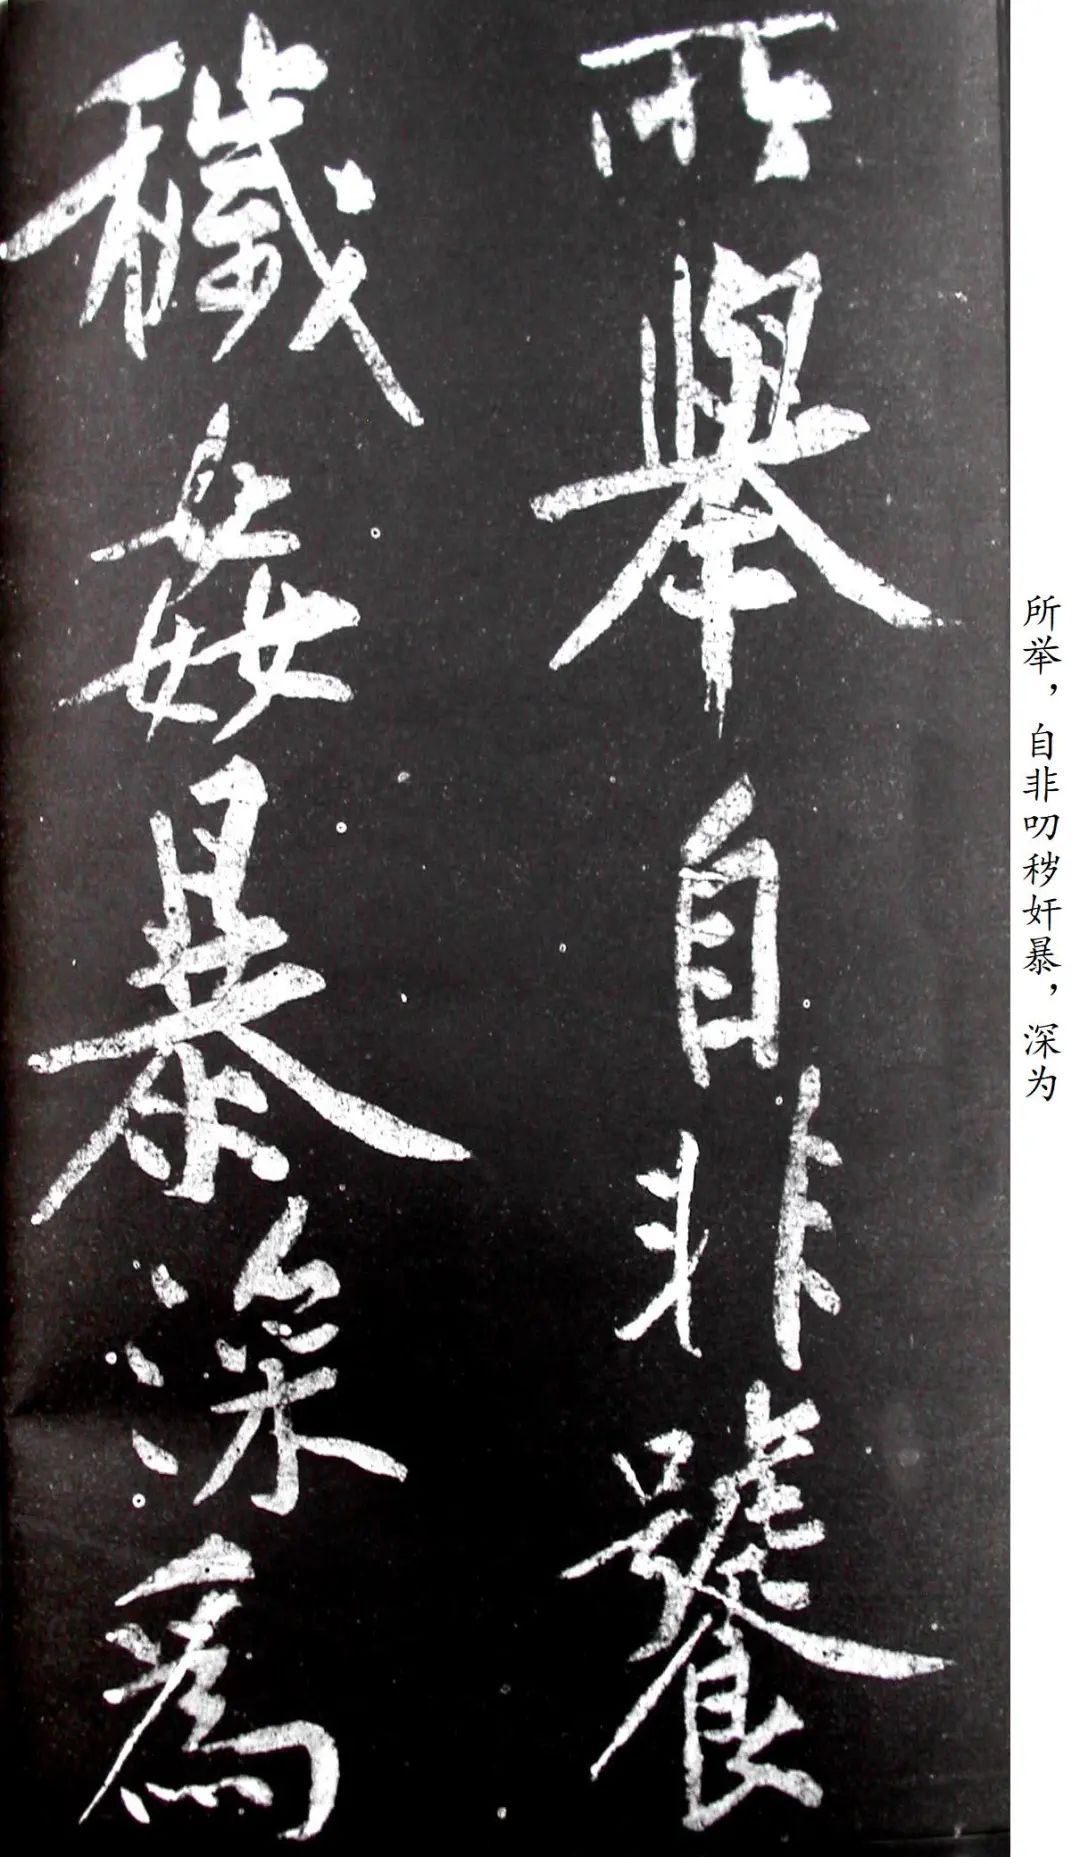 所举，自非叨秽奸暴，深为
所舉自非饕
穢姦暴深為